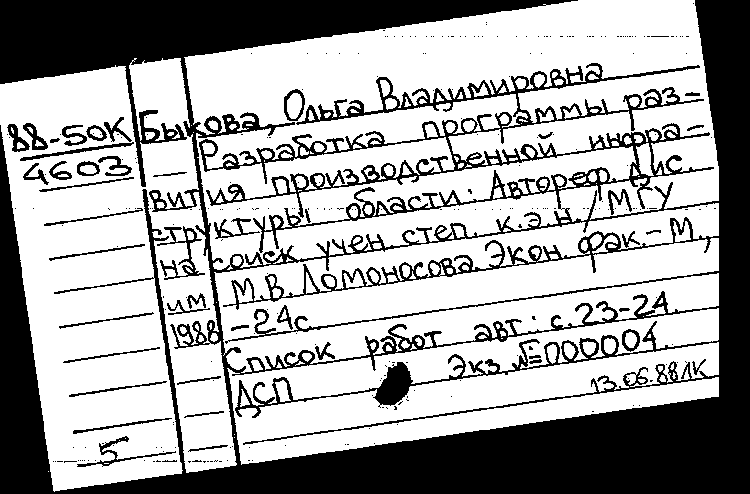 88-50К
4603
Быкова, Ольга Владимировна
Разработка программы раз-
вития производственной инфра-
структуры области: Автореф. дис.
на соиск учен. степ. к.э.н. / МГУ
им М.В. Ломоносова. Экон. фак. - М.,
1988 - 24с.
Список работ авт: с. 23-24.
ДСП Экз №000004.
13.06.88 ЛК
5